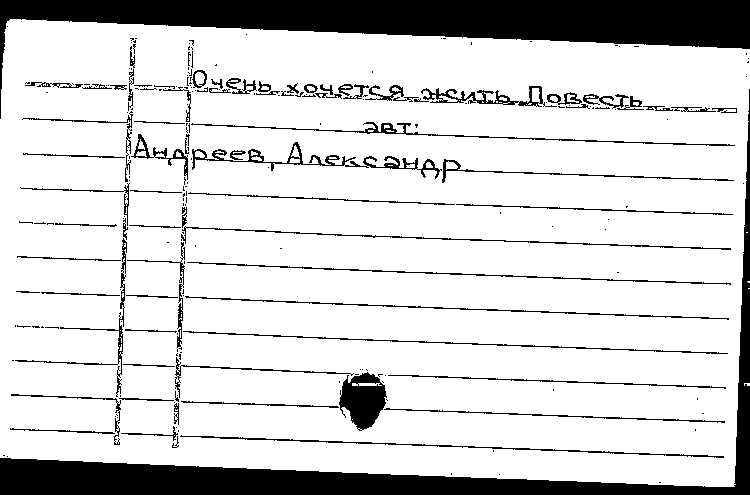 Очень хочется жить Повесть
авт:
Андреев, Александр